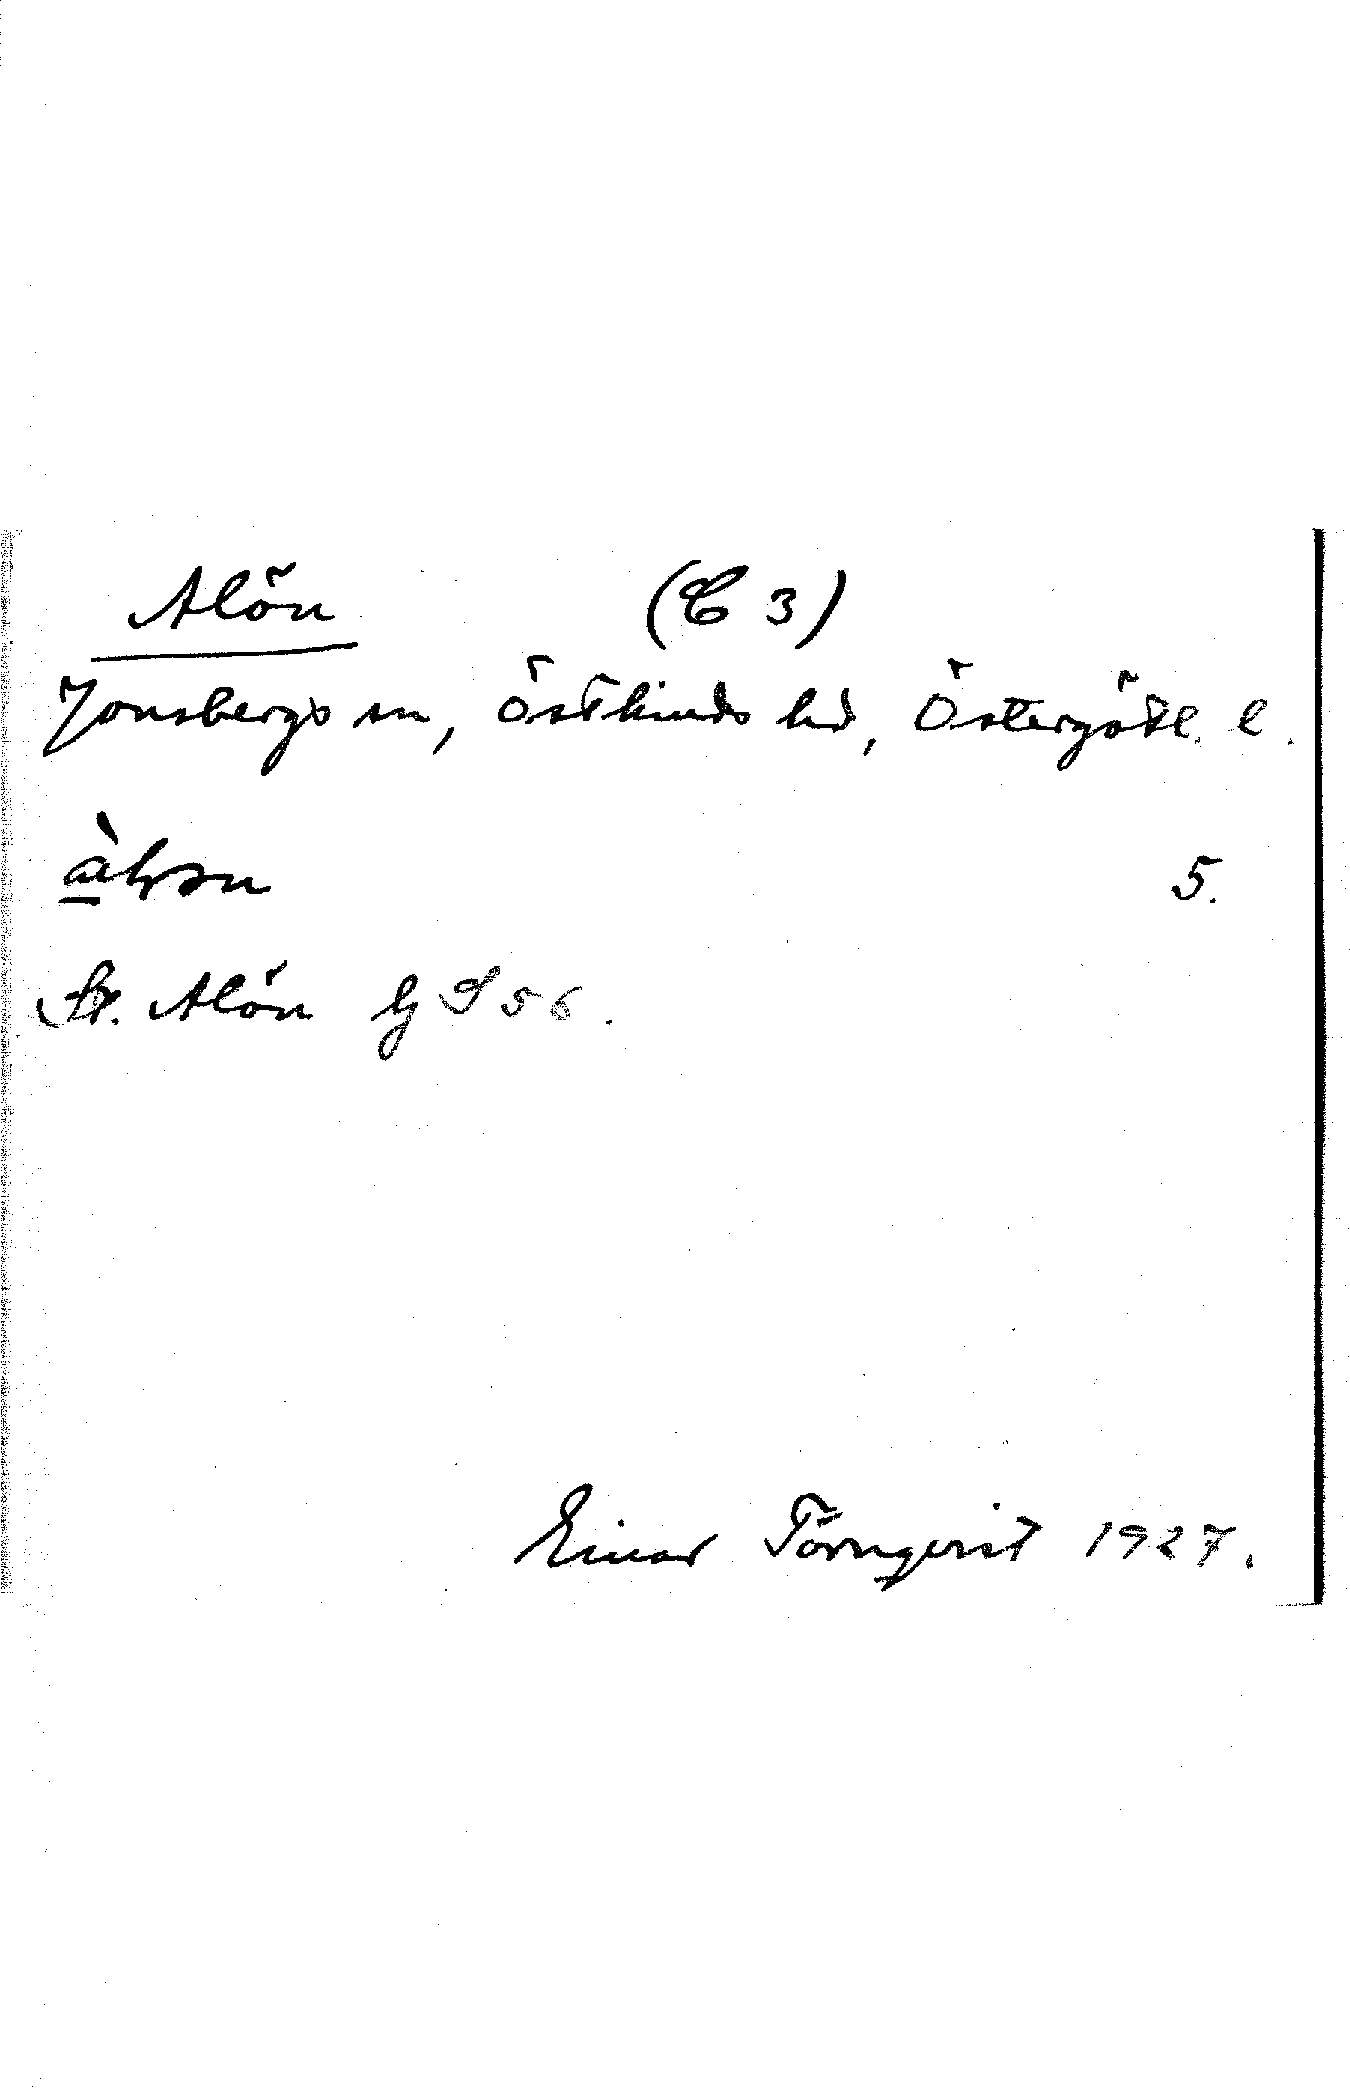 Alön (C 3)
Jonsbergs sn, Östkinds hd, Östergötl. l.
5.
St. Alön GS 56.
Einar Törnqvist 1927.